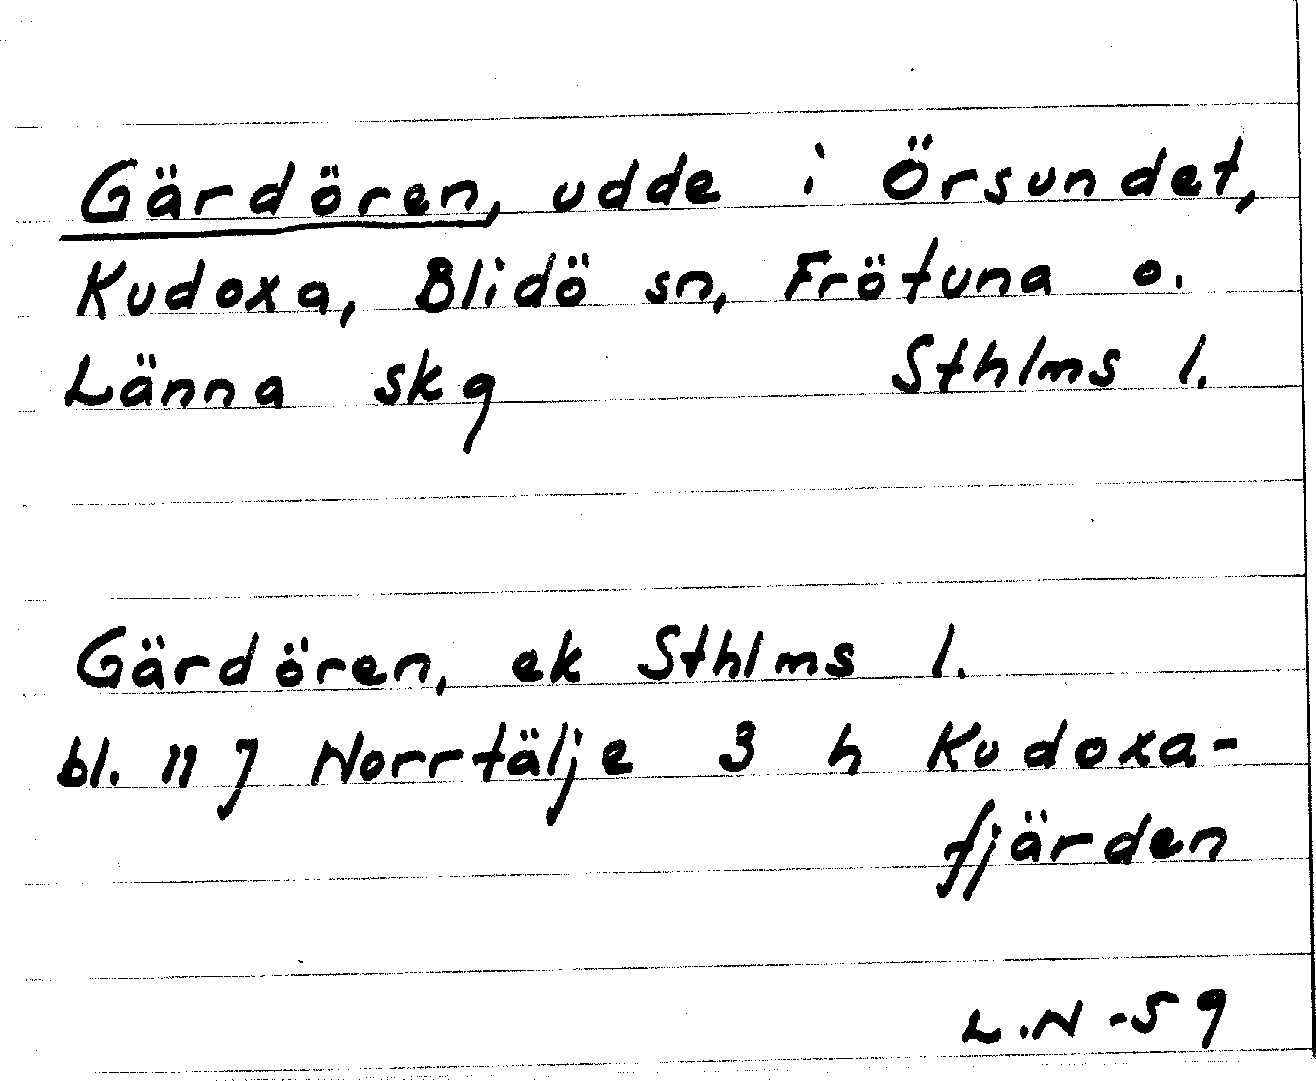 Gärdören, udde i Örsundet,
Kudoxa, Blidö sn, Frötuna o.
Länna skg Sthlms l.
Gärdören, ek Sthlms l.
bl. 11 J Norrtälje 3 h Kudoxa-
fjärden
L.N -59